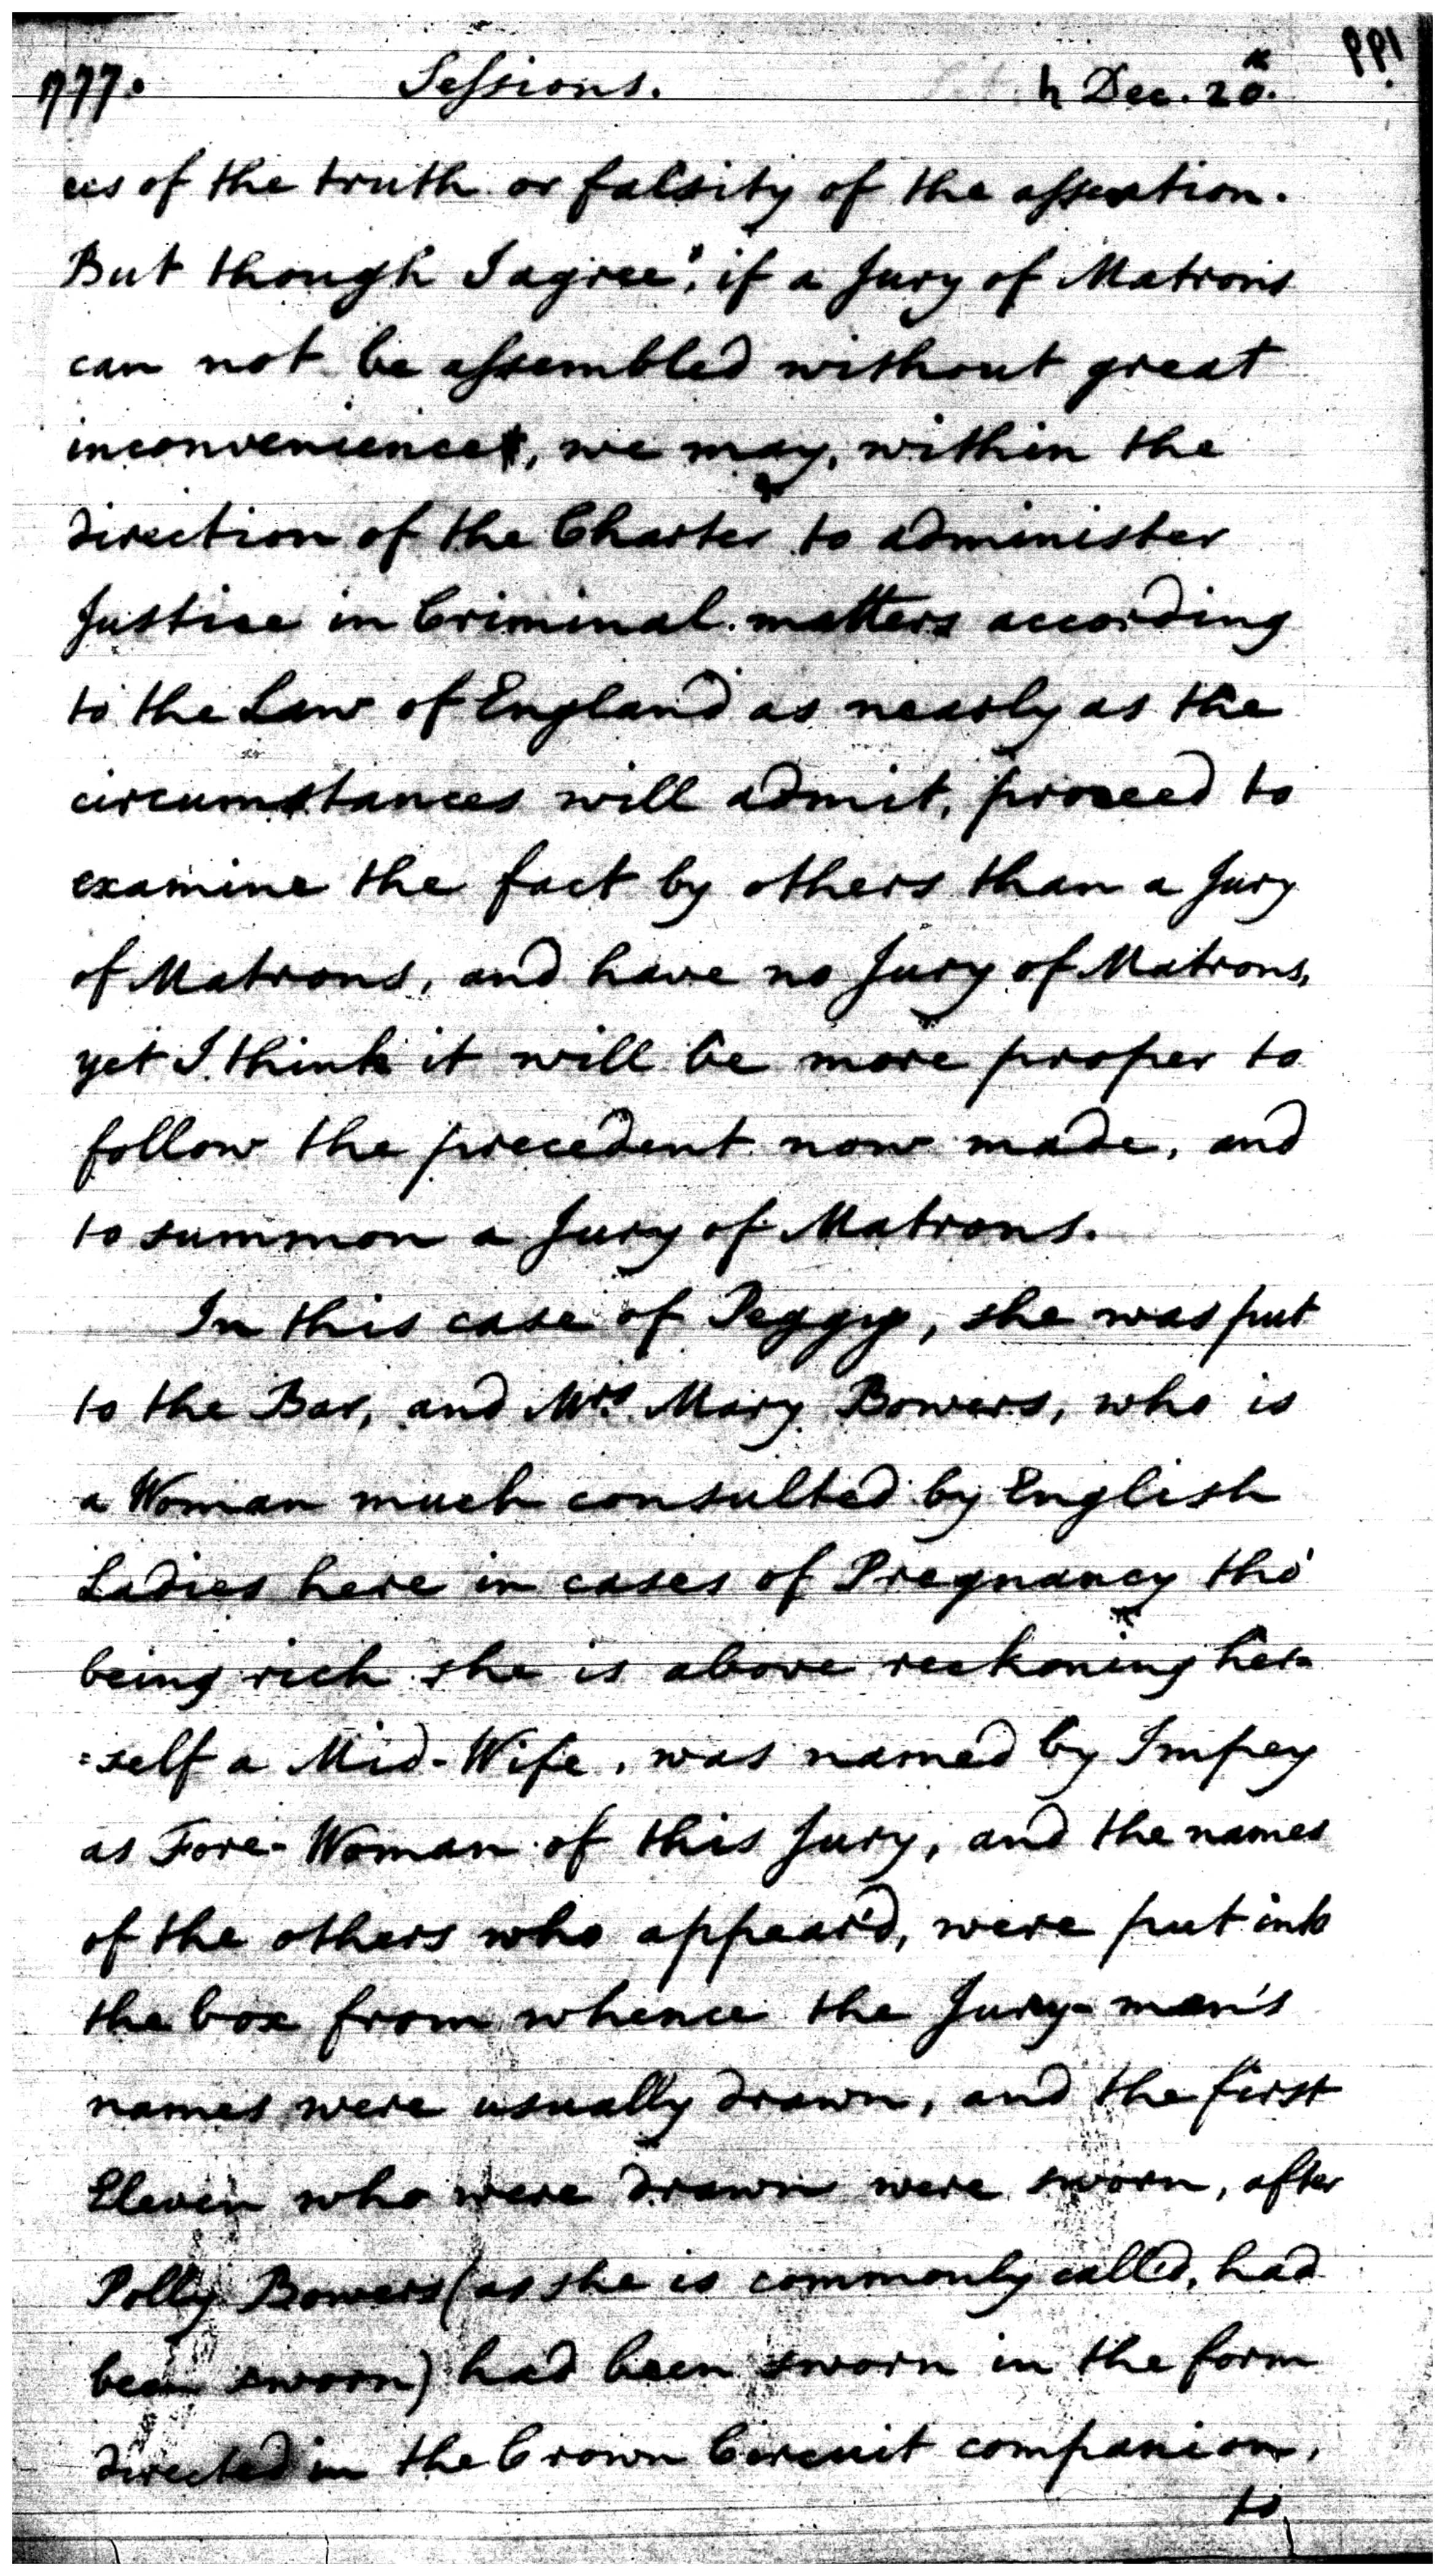 777. Sessions. ♄ Dec. 20.
ces of the truth or falsity of the assertion.
But though I agree, if a Jury of Matrons
can not be assembled without great
inconvenience, we may, within the
direction of the Charter to administer
Justice in Criminal matters according
to the Law of England as nearly as the
circumstances will admit, proceed to
examine the fact by others than a Jury
of Matrons, and have no Jury of Matrons,
yet I think it will be more proper to
follow the precedent now made, and
to summon a Jury of Matrons.
In this case of Peggy, she was put
to the Bar, and Mrs. Mary Bowers, who is
a Woman much consulted by English
Ladies here in cases of Pregnancy tho'
being rich she is above reckoning her=
=self a Mid-Wife, was named by Impey
as Fore-Woman of this Jury, and the names
of the others who appear'd, were put into
the box from whence the Jury-men's
names were usually drawn, and the first
Eleven who were drawn were sworn, after
Polly Bowers (as she is commonly call'd, had
been sworn) had been sworn in the form
directed in the Crown Circuit companion,
to